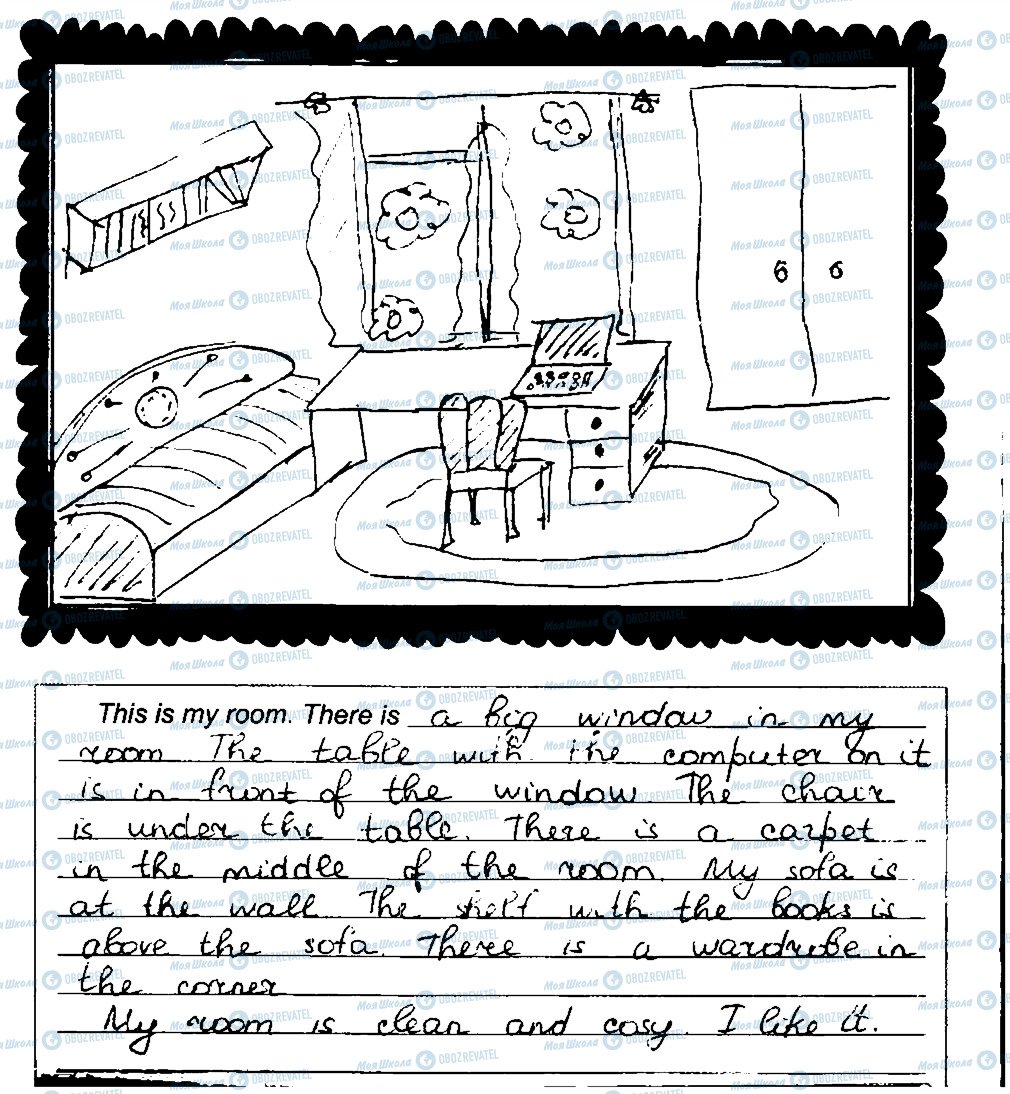 This is my room. There is a big window in my
room The table with the computer on it
is in front of the window. The chair
is under the table. There is a carpet
in the middle of the room. My sofa is
at the wall The shelf with the books is
above the sofa. There is a wardrobe in
the corner
My room is clean and cosy. I like it.
МояШкола OBOZREVATEL